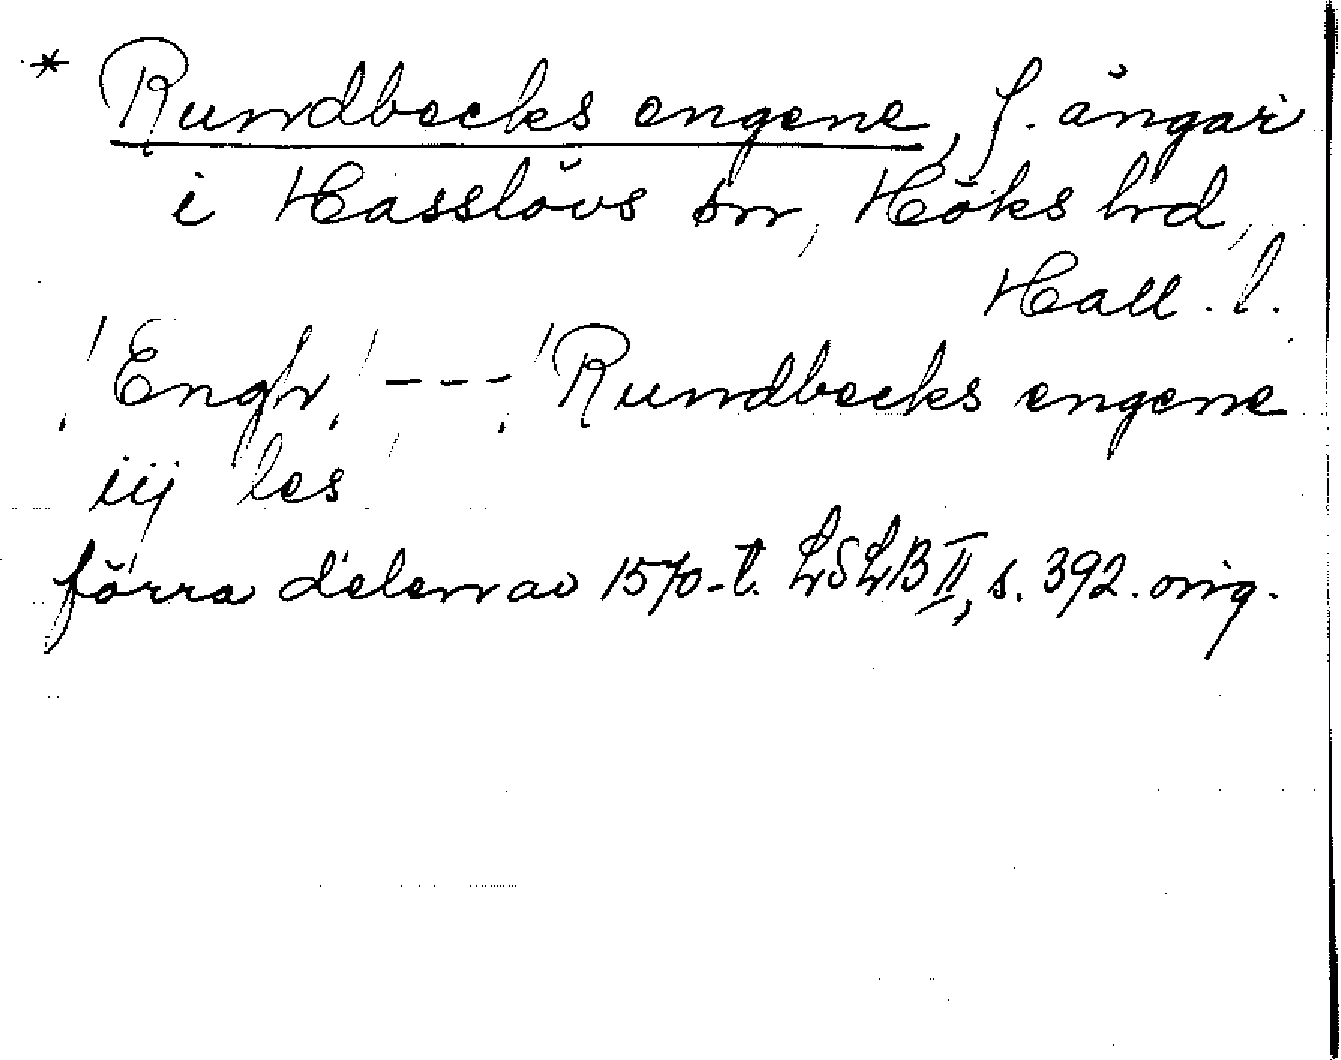 * Rundbecks engene, f. ängar
i Hasslövs sn, Höks hd,
Hall. l.
Engh --- Rundbecks engene
iij les
förra delen av 1570-t. LSLB II, s. 392. orig.